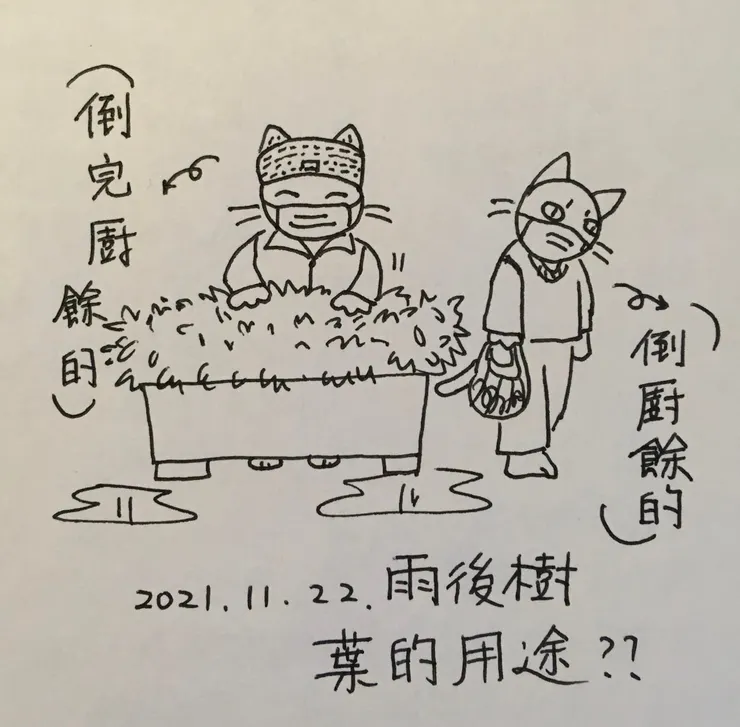 (倒完廚餘的)
(倒廚餘的)
2021.11.22.雨後樹
葉的用途??